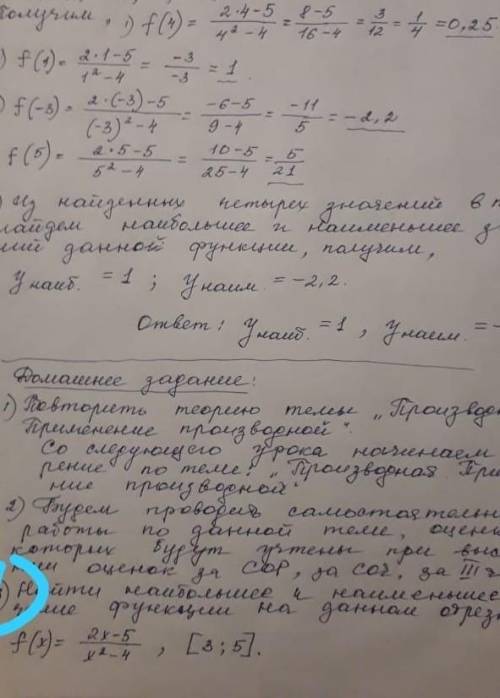 получим, 1) f(4) = (2·4-5)/(4²-4) = (8-5)/(16-4) = 3/12 = 1/4 = 0,25.
) f(1) = (2·1-5)/(1²-4) = -3/-3 = 1.
) f(-3) = (2·(-3)-5)/((-3)²-4) = (-6-5)/(9-4) = -11/5 = -2,2
f(5) = (2·5-5)/(5²-4) = (10-5)/(25-4) = 5/21
) Из найденных четырех значений в
найдем наибольшее и наименьшее з
ний данной функции, получим,
y наиб. = 1 ; y наим. = -2,2.
Ответ: y наиб. = 1 , y наим. = -
Домашнее задание:
1) Повторить теорию темы „Производ
Применение производной".
Со следующего урока начинаем
рение по теме: „Производная. При
ние производной"
2) Будем проводить самостоятельн
работы по данной теме, оцен
которых будут учтены при выс
нии оценок за СОР, за СОЧ, за III
) Найти наибольшее и наименьшее
ние функции на данном отрез
f(x) = (2x-5)/(x²-4) , [3;5].